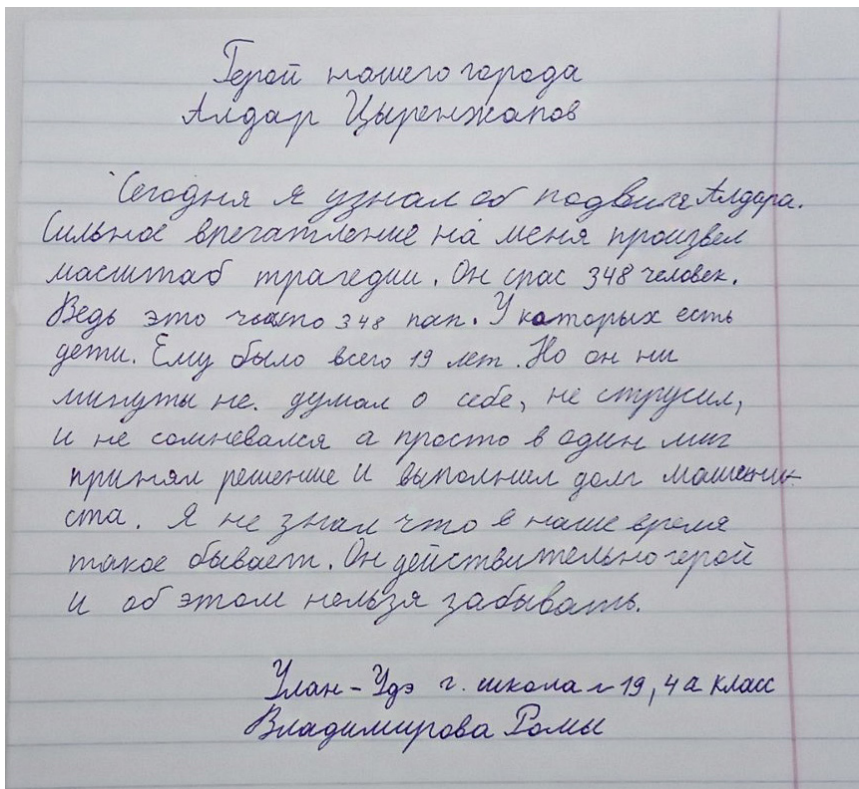 Герой нашего города
Алдар Цыренжапов
Сегодня я узнал об подвиге Алдара.
Сильное впечатление на меня произвел
масштаб трагедии. Он спас 348 человек.
Ведь это чьито 348 пап. У которых есть
дети. Ему было всего 19 лет. Но он ни
минуты не. думал о себе, не струсил,
и не сомневался а просто в один миг
принял решение и выполнил долг машини-
ста. Я не знал что в наше время
такое бывает. Он действительно герой
и об этом нельзя забывать.
Улан-Удэ г. школа №19, 4а класс
Владимирова Ромы